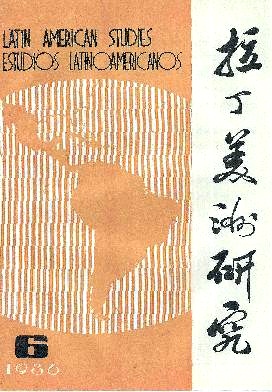 LATIN AMERICAN STUDIES
ESTUDIOS LATINOAMERICANOS
拉丁美洲研究
6
1986